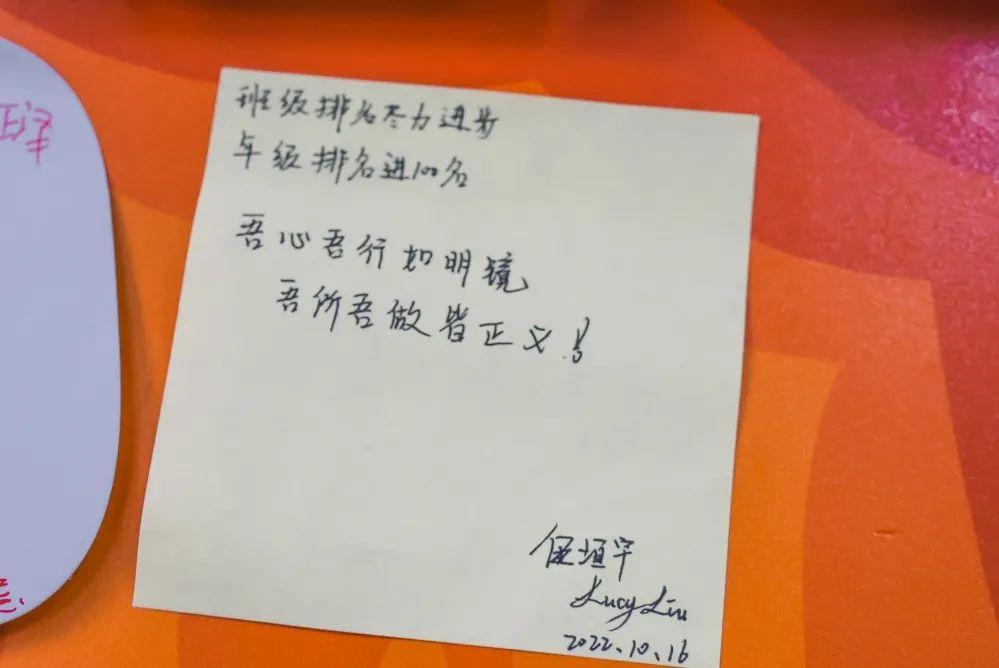 班级排名尽力进步
年级排名进100名
吾心吾行如明镜
吾所吾做皆正义!
垣宇
Lucy Liu
2022.10.16